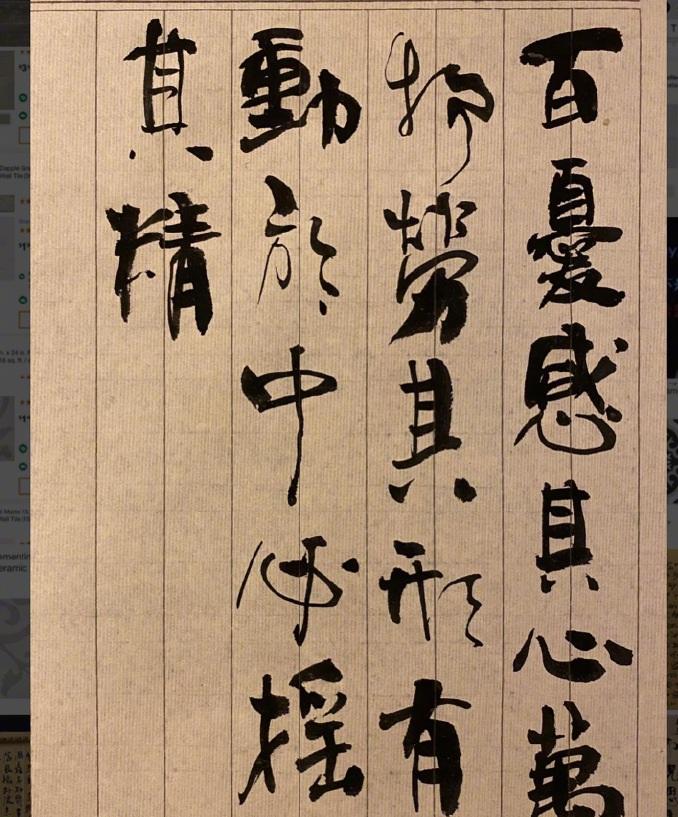 百憂感其心萬
物勞其形有
動於中必搖
其精